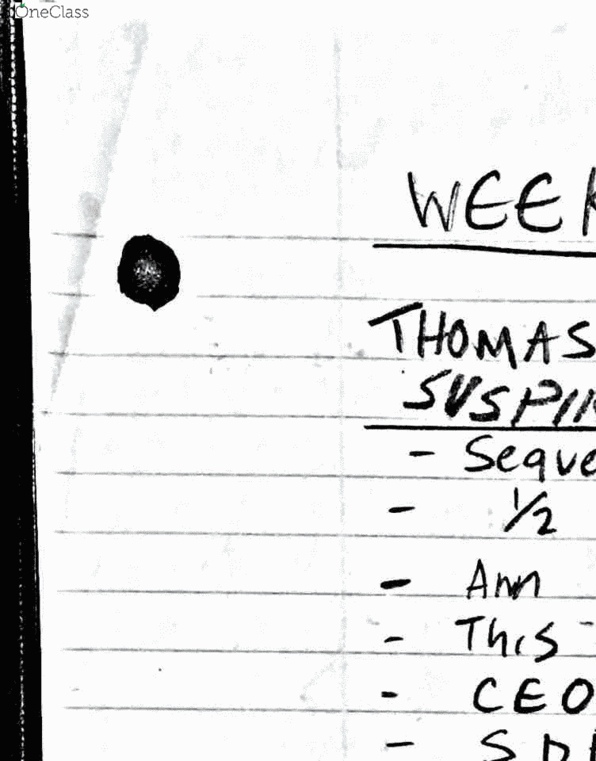 OneClass
WEEK
THOMAS
SUSPIR
- Seque
- 1/2
- Ann
- This
- CEO
- SDI